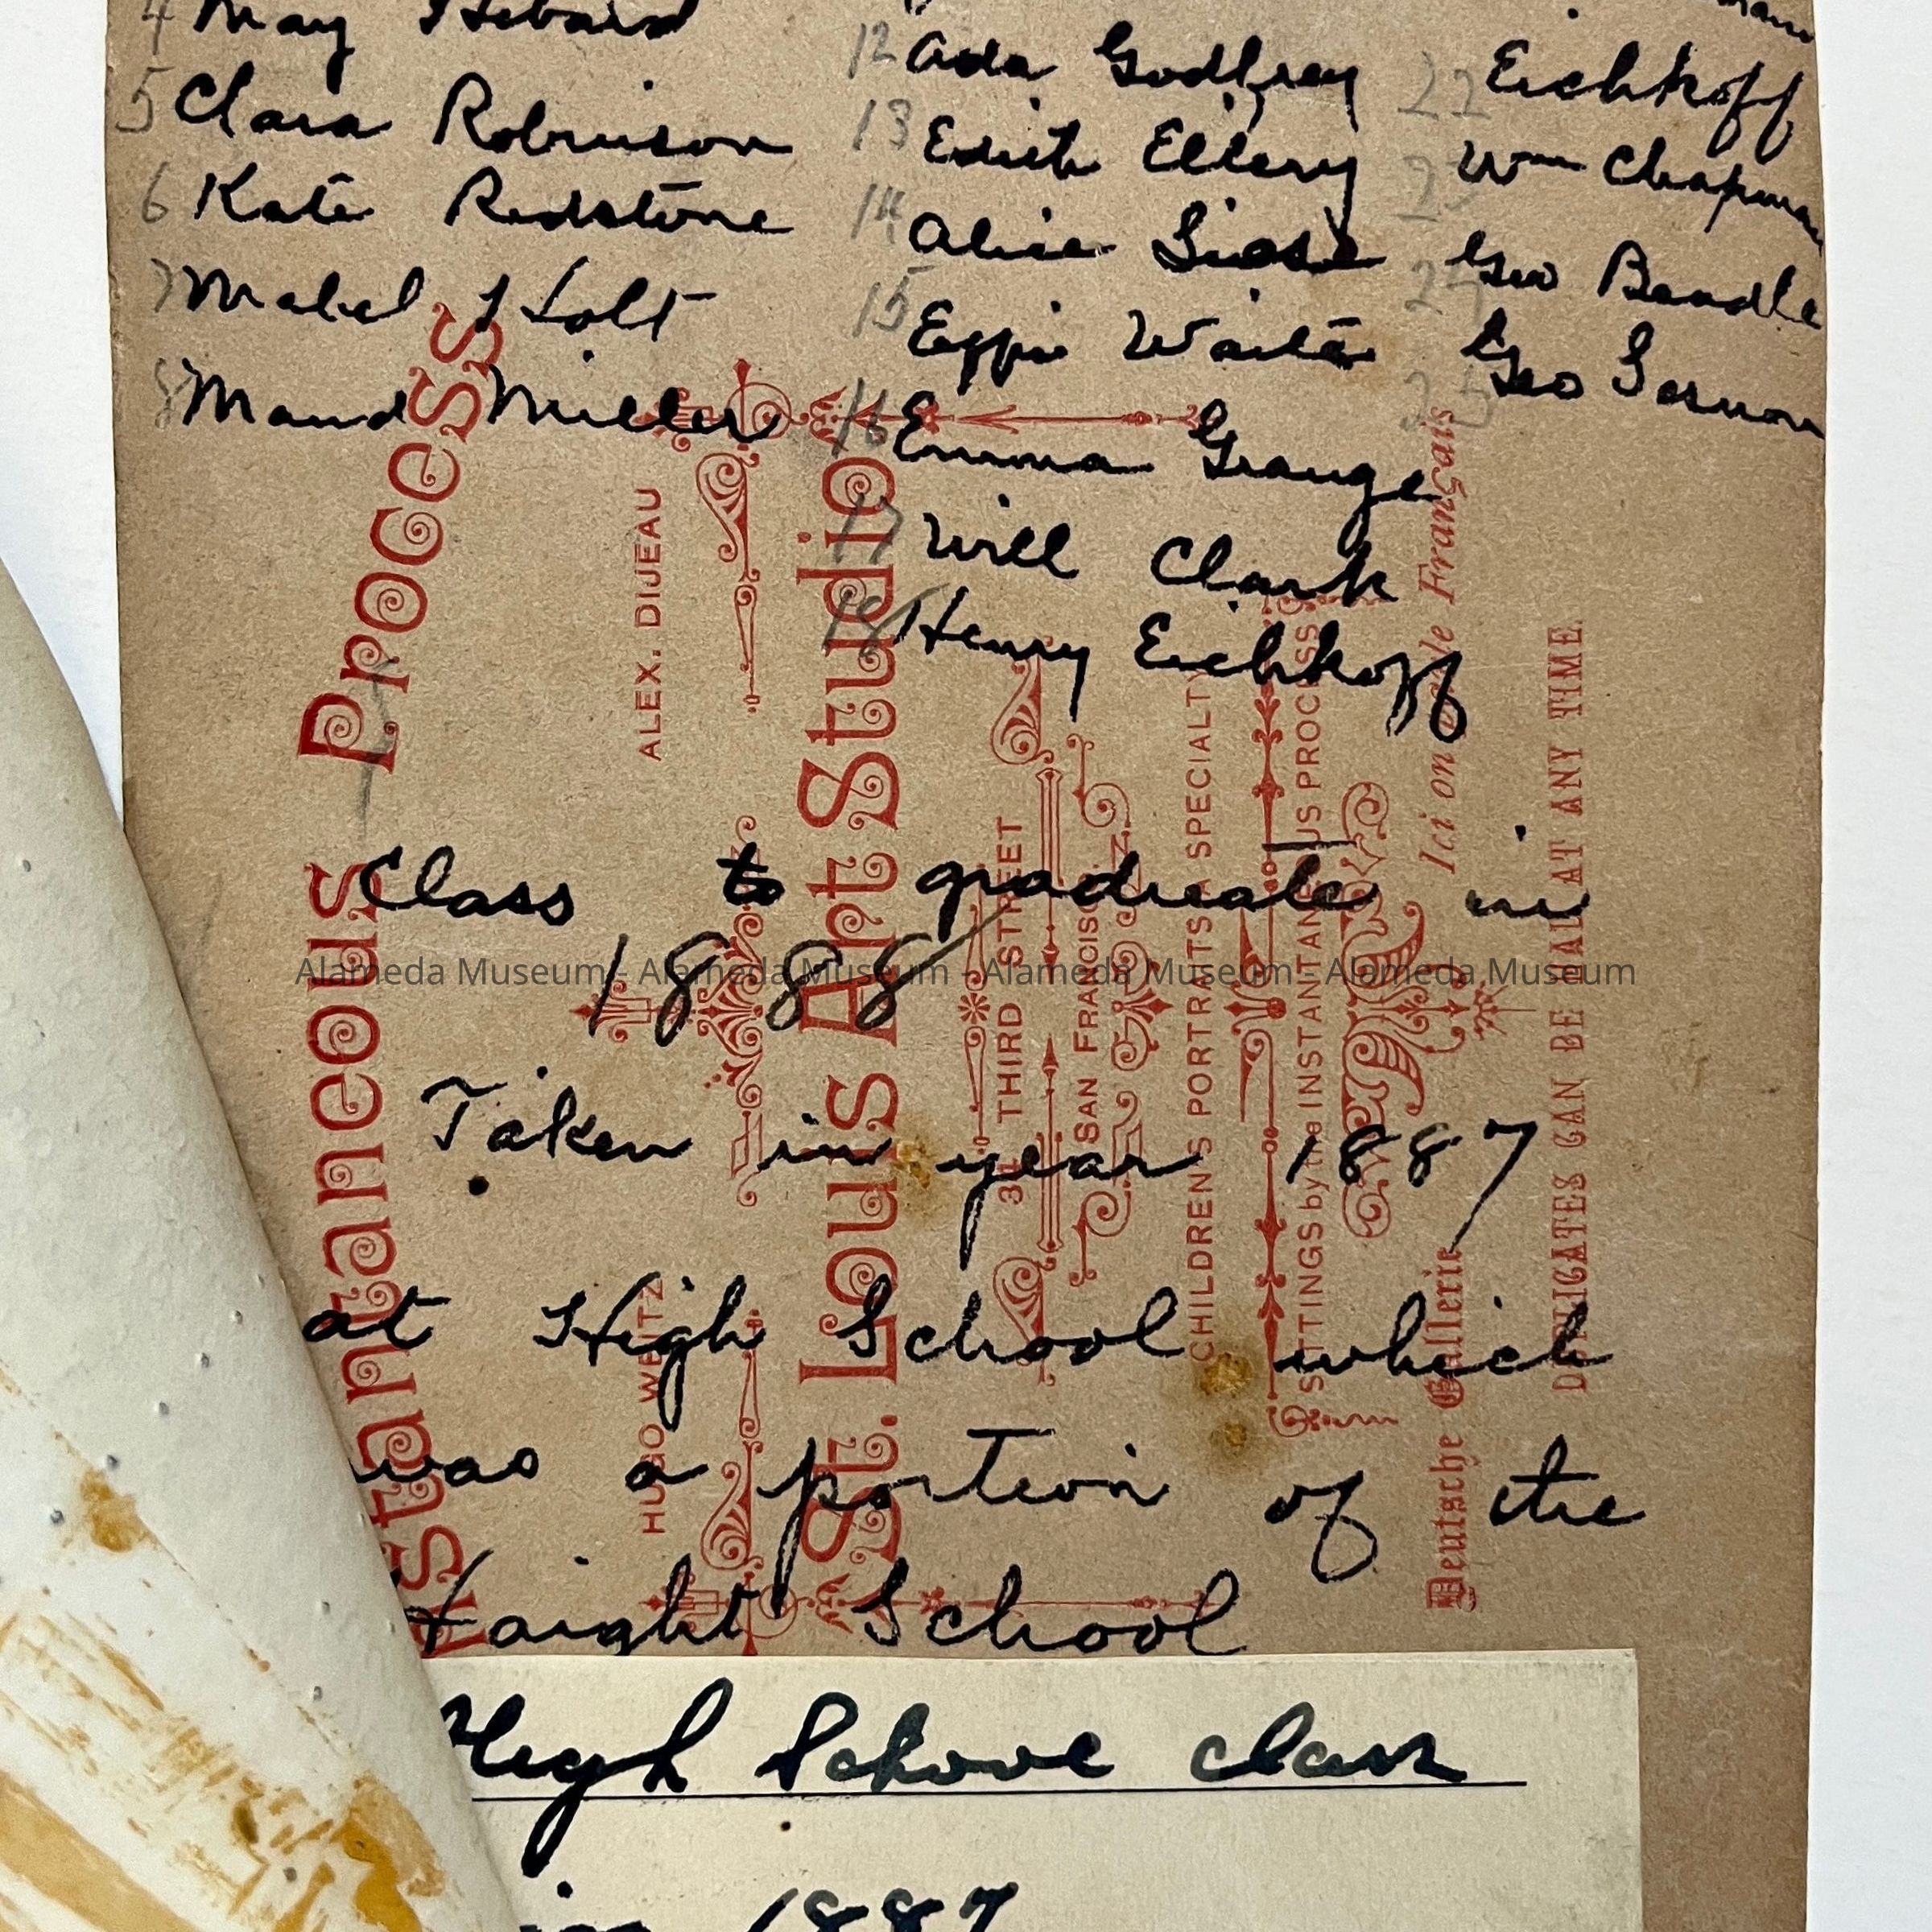 4 May Hebard
5 Clara Robinson
6 Kate Redstone
7 Mabel Holt
8 Maud Miller
12 Ada Godfrey
13 Edith Ellery
14 Alice
15 Effie Waite
16 Emma Grange
17 Will Clark
18 Henry Eichkoff
22 Eichkoff
23 Wm Chapman
24 Geo Beadle
25 Geo
Class to graduate in
1888
Taken in year 1887
at High School which
was a portion of the
Haight School
High School class
in 1887
Instantaneous Process
HUGO WEITZ
ALEX. DIJEAU
St. Louis Art Studio
THIRD STREET
SAN FRANCISCO
CHILDREN'S PORTRAITS A SPECIALTY
SITTINGS by the INSTANTANEOUS PROCESS
Deutsche Gallerie
Ici on parle Français
DUPLICATES CAN BE HAD AT ANY TIME.
Alameda Museum - Alameda Museum - Alameda Museum - Alameda Museum